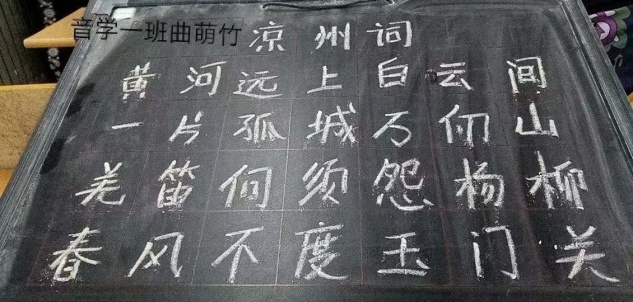 音学一班曲萌竹
凉州词
黄河远上白云间
一片孤城万仞山
羌笛何须怨杨柳
春风不度玉门关